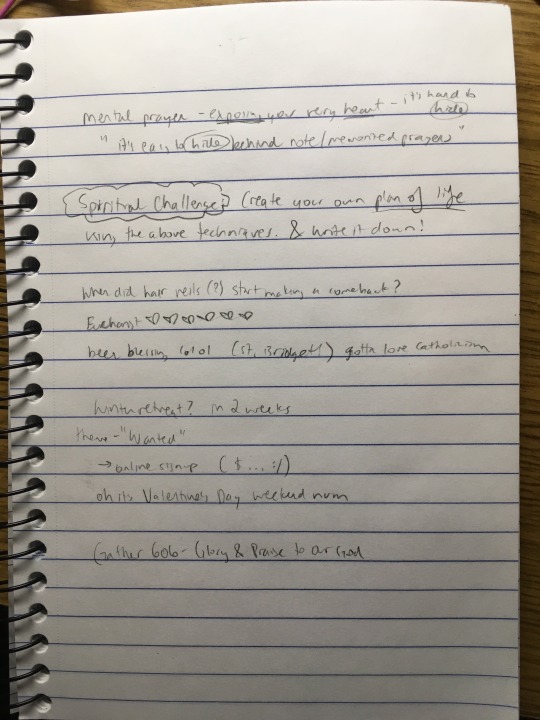 mental prayer - exposing your very heart - it's hard to hide
"it's easy to hide behind note/memorized prayers"
Spiritual Challenge: Create your own plan of life
using the above techniques. & write it down!
When did hair veils (?) start making a comeback?
Eucharist ♡ ♡ ♡ ♡ ♡ ♡
beer blessing lolol (St. Bridget!) gotta love Catholicism
Winter retreat? in 2 weeks
theme - "Wanted"
→ online signup ($..., :/)
oh its Valentine's Day weekend
Gather 606 - Glory & Praise to our God